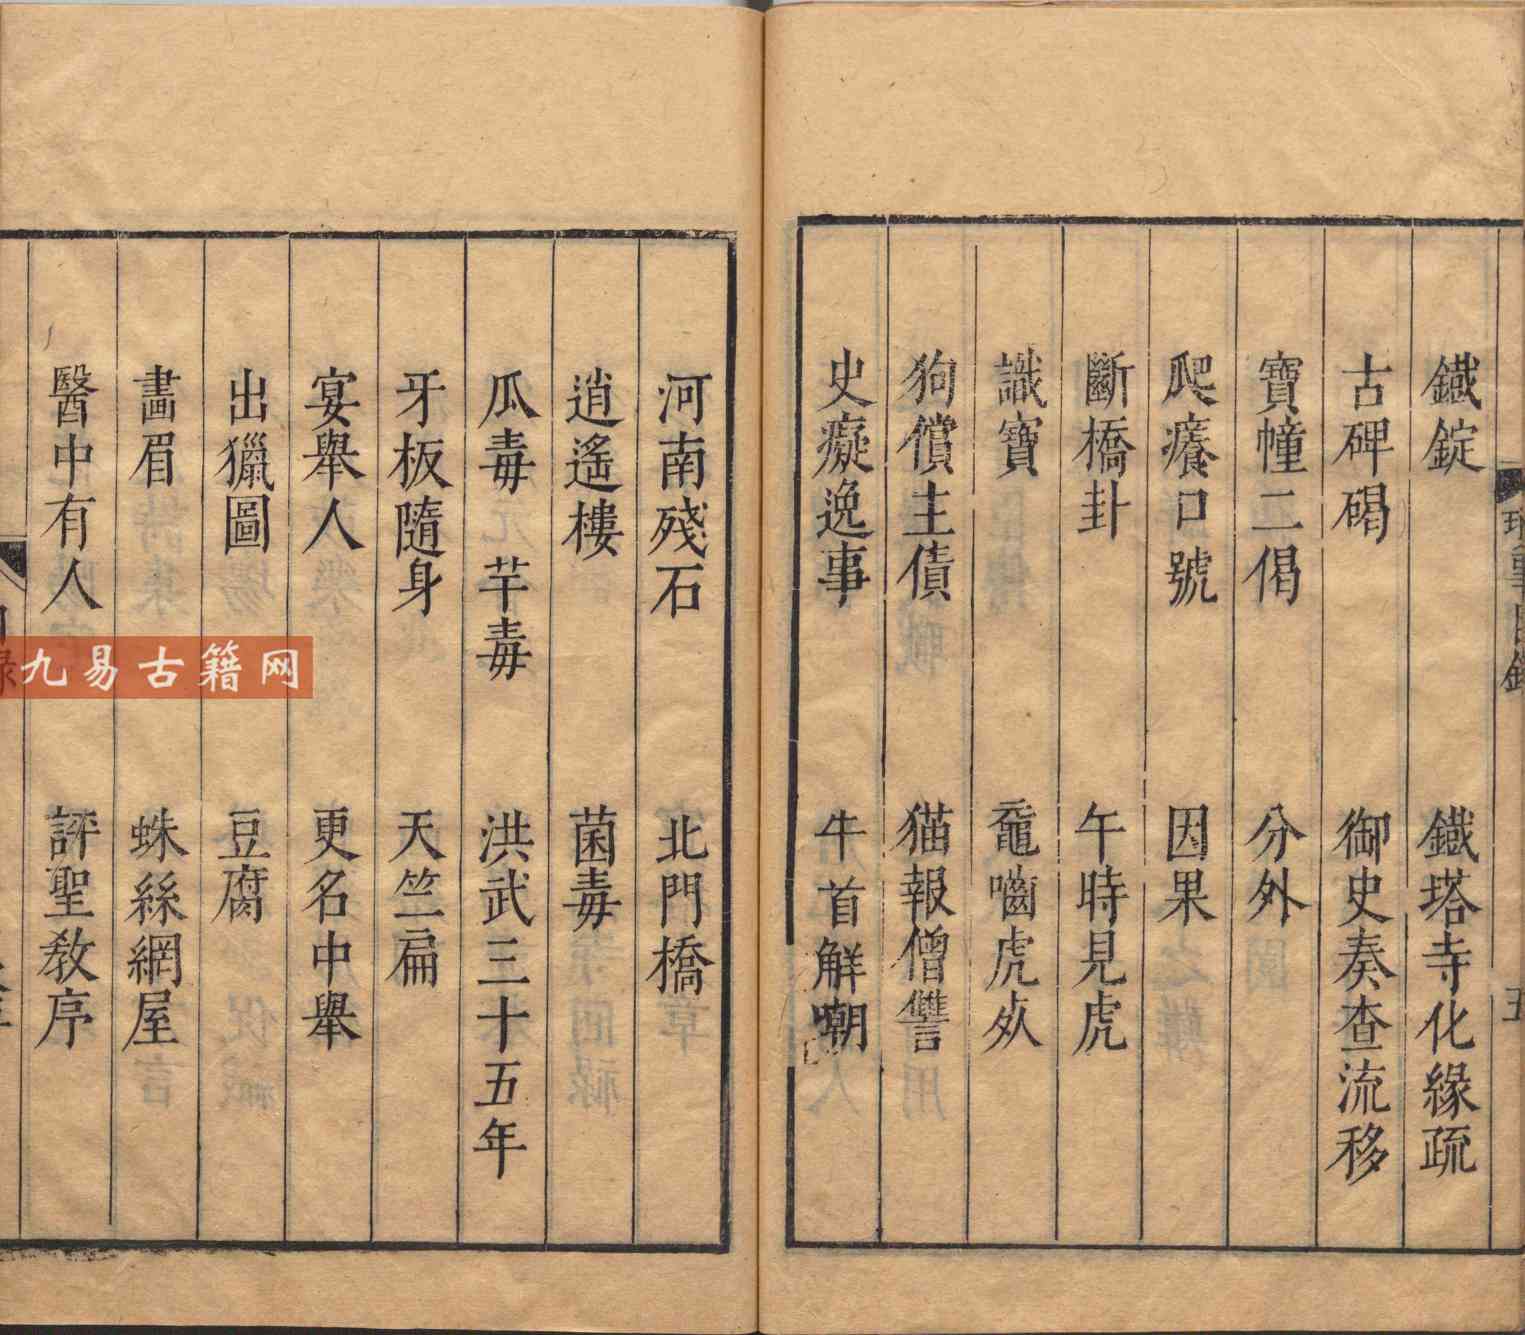 鐵錠 鐵塔寺化緣疏
古碑碣 御史奏查流移
寶幢二偈 分外
爬癢口號 因果
斷橋卦 午時見虎
識寶 黿嚙虎
狗償主債 猫報僧讐
史癡逸事 牛首解嘲
五
河南殘石 北門橋
逍遙樓 菌毒
瓜毒 芊毒 洪武三十五年
牙板隨身 天竺扁
宴舉人 更名中舉
出獵圖 豆腐
畵眉 蛛絲網屋
醫中有人 評聖敎序
九易古籍网